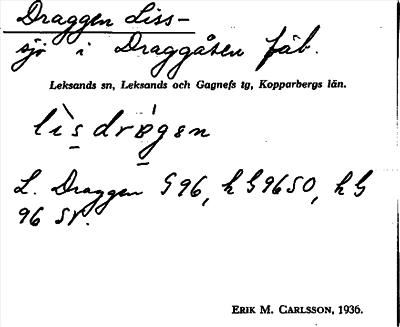 Draggen Liss-
sjö i Draggåsen fäb.
Leksands sn, Leksands och Gagnefs tg, Kopparbergs län.
lìs drágen
L. Draggen G96, h G96SO, h G
96 Sv.
ERIK M. CARLSSON, 1936.